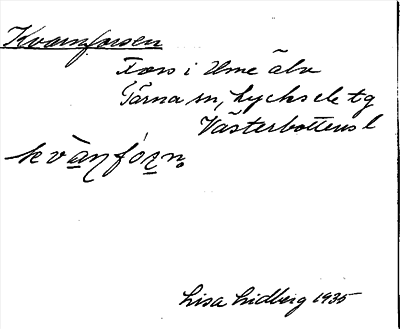 Kvarnforsen
Fors i Ume älv
Tärna sn, Lycksele tg
Västerbottens l
kvànfórn.
Lisa Lidberg 1935